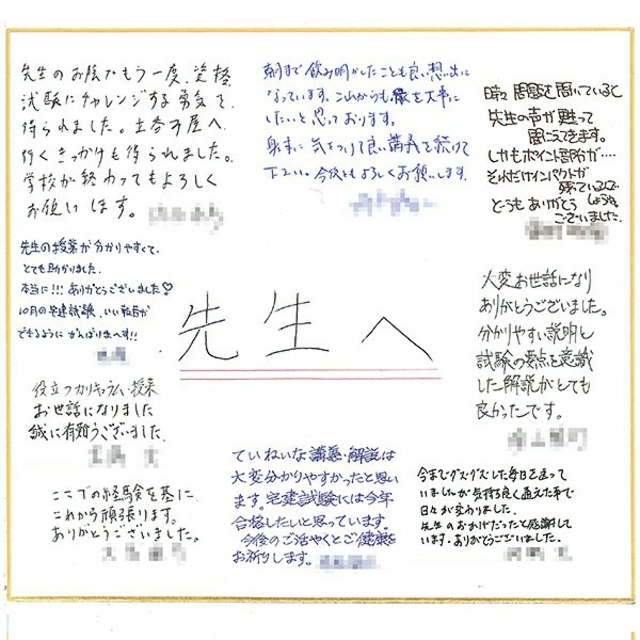 先生のお陰でもう一度、資格
試験にチャレンジする勇気を
得られました。土呑み屋へ
行くきっかけも得られました。
学校が終わってもよろしく
お願いします。
朝まで飲み明かしたことも良い想い出に
なっています。これからも縁を大事に
したいと思っております。
身体に気をつけて良い講義を続けて
下さい。今後ともよろしくお願いします。
時々問題を聞いていると
先生の声が甦って
聞こえてきます。
しかもポイント部分が…
それだけインパクトが
残ているしで
しょうね。
どうもありがとう
ございました。
先生の授業が分かりやすくて、
とても助かりました。
本当に!!!ありがとうございました♡
10月の宅建試験、いい報告が
できるようにがんばりまーす!!
先生へ
大変お世話になり
ありがとうございました。
分かりやすい説明と
試験の要点を意識
した解説がとても
良かったです。
役立つカリキュラム・授業
お世話になりました
誠に有難うございました。
ここでの経験を基に
これから頑張ります。
ありがとうございました。
ていねいな講義・解説は
大変分かりやすかったと思い
ます。宅建試験には今年
合格したいと思っています。
今後のご活やくとご健康を
お祈りします。
今までグズグズした毎日を送って
いましたが気持ち良く通えた事で
日々が変わりました。
先生のおかげだったと感謝して
います。ありがとうございました。